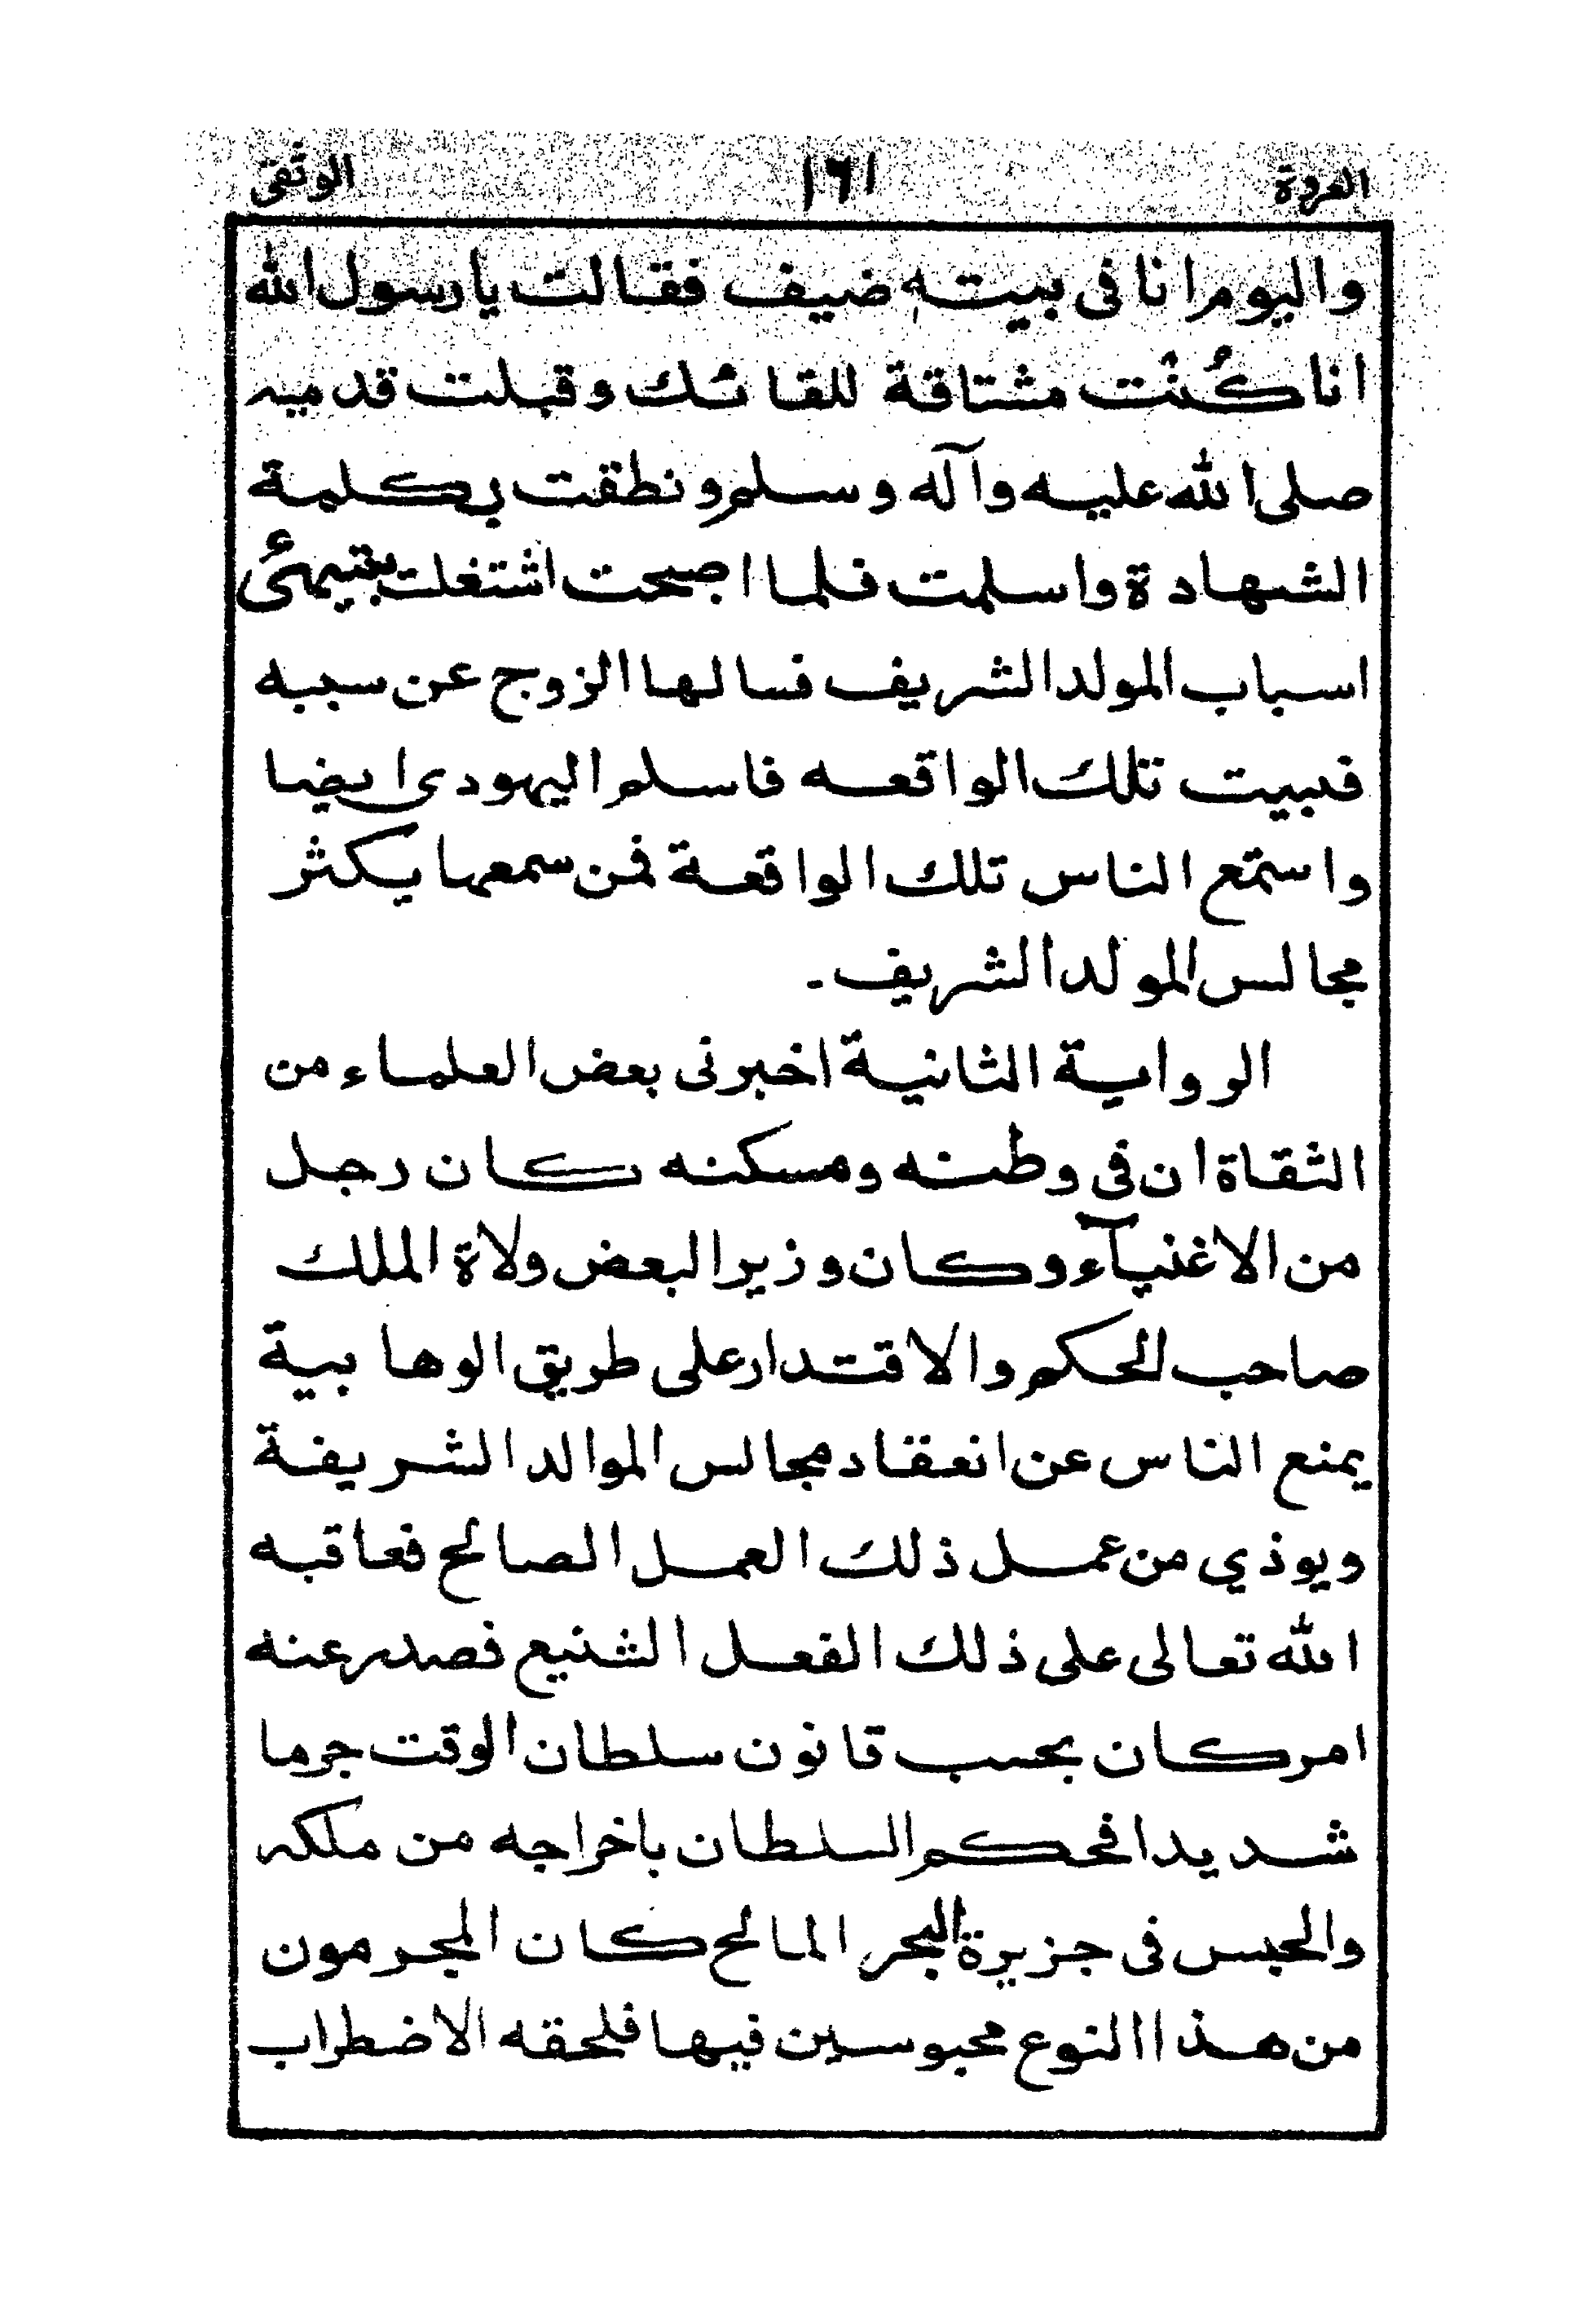 العروة ١٦١ الوثقى
واليوم انا فى بيته ضيف فقالت يا رسول الله
انا كُنْت مشتاقة للقائك وقبلت قدميه
صلى الله عليه وآله وسلم ونطقت بكلمة
الشهادة واسلمت فلما اصبحت اشتغلت بتهيئ
اسباب المولد الشريف فسالها الزوج عن سببه
فبيت تلك الواقعه فاسلم اليهودى ايضا
واستمع الناس تلك الواقعة فمن سمعها يكثر
مجالس المولد الشريف۔
الرواية الثانية اخبرنى بعض العلماء من
الثقاة ان فى وطنه ومسكنه كان رجل
من الاغنيآء وكان وزير البعض ولاة الملك
صاحب الحكم والاقتدار على طريق الوهابية
يمنع الناس عن انعقاد مجالس الموالد الشريفة
ويوذي من عمل ذلك العمل الصالح فعاقبه
الله تعالى على ذلك الفعل الشنيع فصدر عنه
امر كان بحسب قانون سلطان الوقت جرما
شديدا فحكم السلطان باخراجه من ملكه
والحبس فى جزيرة البحر المالح كان المجرمون
من هذا النوع محبوسين فيها فلحقه الاضطراب